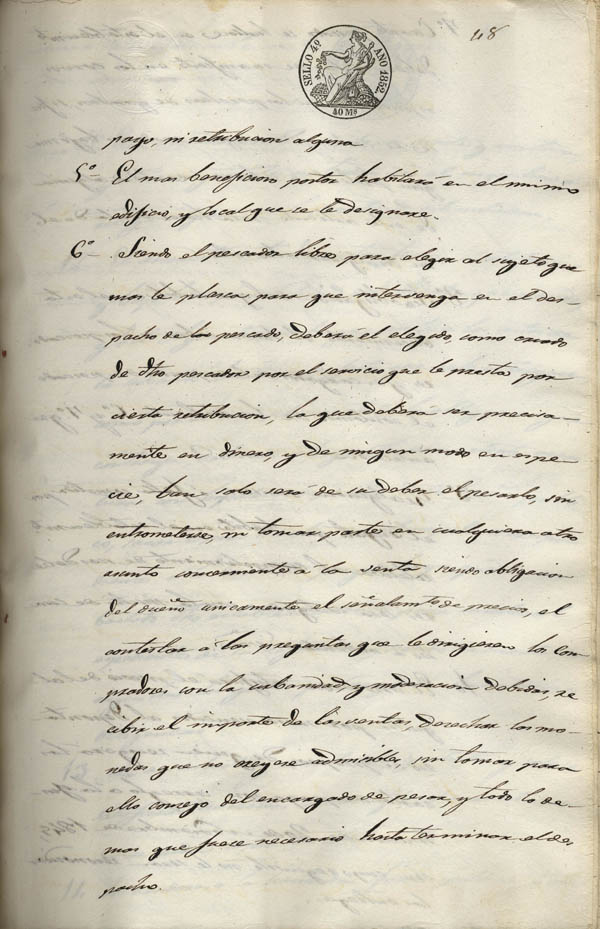 48
SELLO 4º AÑO 1852.
40 Ms
pago, ni retribucion alguna
5º El mas beneficioso postor habitará en el mismo
edificio, y local que se le designare.
6º Siendo el pescador libre para elegir al sujeto que
mas le plasca para que intervenga en el des-
pacho de la pescado, deberá el elegido, como criado
de dho pescador por el servicio que le presta por
cierta retribucion, la que deberá ser precisa-
mente en dinero, y de ningun modo en espe-
cie, tan solo será de su deber el pesarlo, sin
entrometerse, ni tomar parte en cualquiera otro
asunto concerniente á la venta, siendo obligacion
del dueño unicamente el señalamto de precio, el
contestar á las preguntas que le dirigieren los com
pradores con la urbanidad, y moderacion debidas, re
cibir el importe de las ventas, desechar las mo-
nedas que no creyere admisibles, sin tomar para
ello consejo del encargado de pesar, y todo lo de-
mas que fuese necesario hasta terminar el des
pacho.